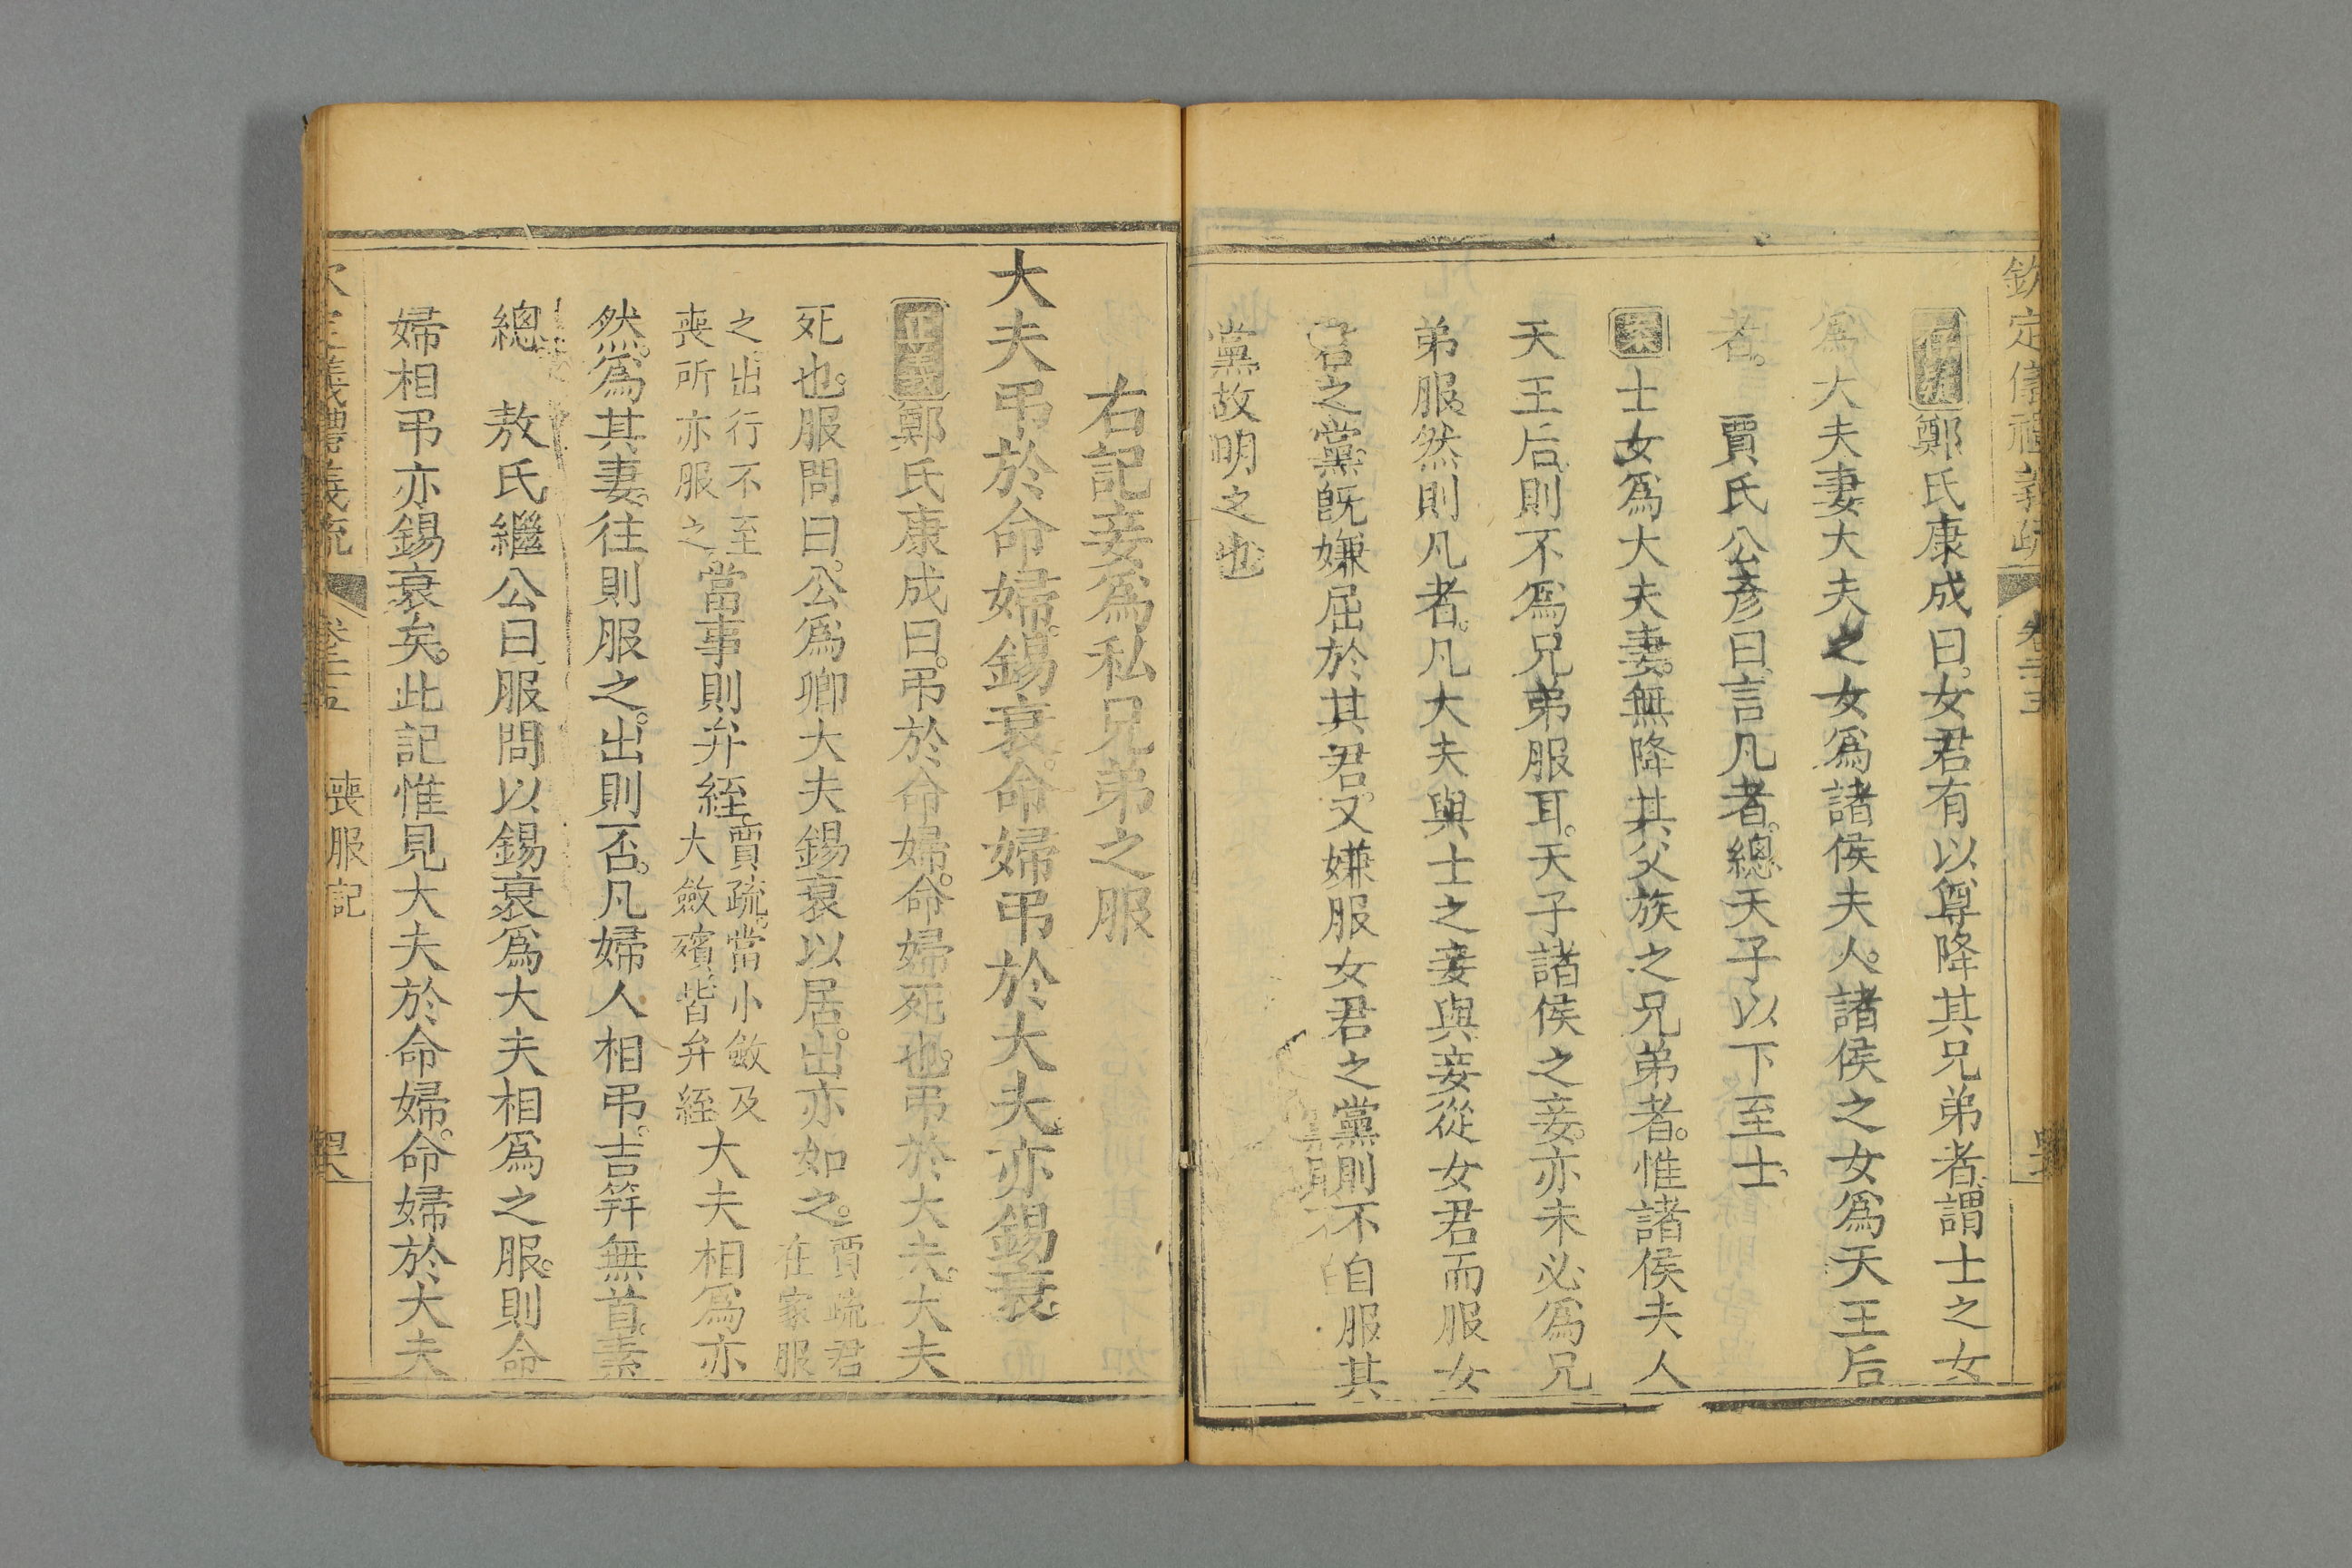 欽定儀禮義疏 卷二十五
鄭氏康成曰女君有以尊降其兄弟者謂士之女
爲大夫妻大夫之女爲諸侯夫人諸侯之女爲天王后
者 賈氏公彥曰言凡者總天子以下至士
案士女爲大夫妻無降其父族之兄弟者惟諸侯夫人
天王后則不爲兄弟服耳天子諸侯之妾亦未必爲兄
弟服然則凡者凡大夫與士之妾與妾從女君而服女
君之黨既嫌屈於其君又嫌服女君之黨則不自服其
黨故明之也
右記妾爲私兄弟之服
大夫弔於命婦錫衰命婦弔於大夫亦錫衰
正義鄭氏康成曰弔於命婦命婦死也弔於大夫大夫
死也服問曰公爲卿大夫錫衰以居出亦如之賈疏君在家服
之出行不至喪所亦服之當事則弁絰賈疏當小斂及大斂殯皆弁絰大夫相爲亦
然爲其妻往則服之出則否凡婦人相弔吉笄無首素
總 敖氏繼公曰服問以錫衰爲大夫相爲之服則命
婦相弔亦錫衰矣此記惟見大夫於命婦命婦於大夫
欽定儀禮義疏 卷二十五 喪服記 四八